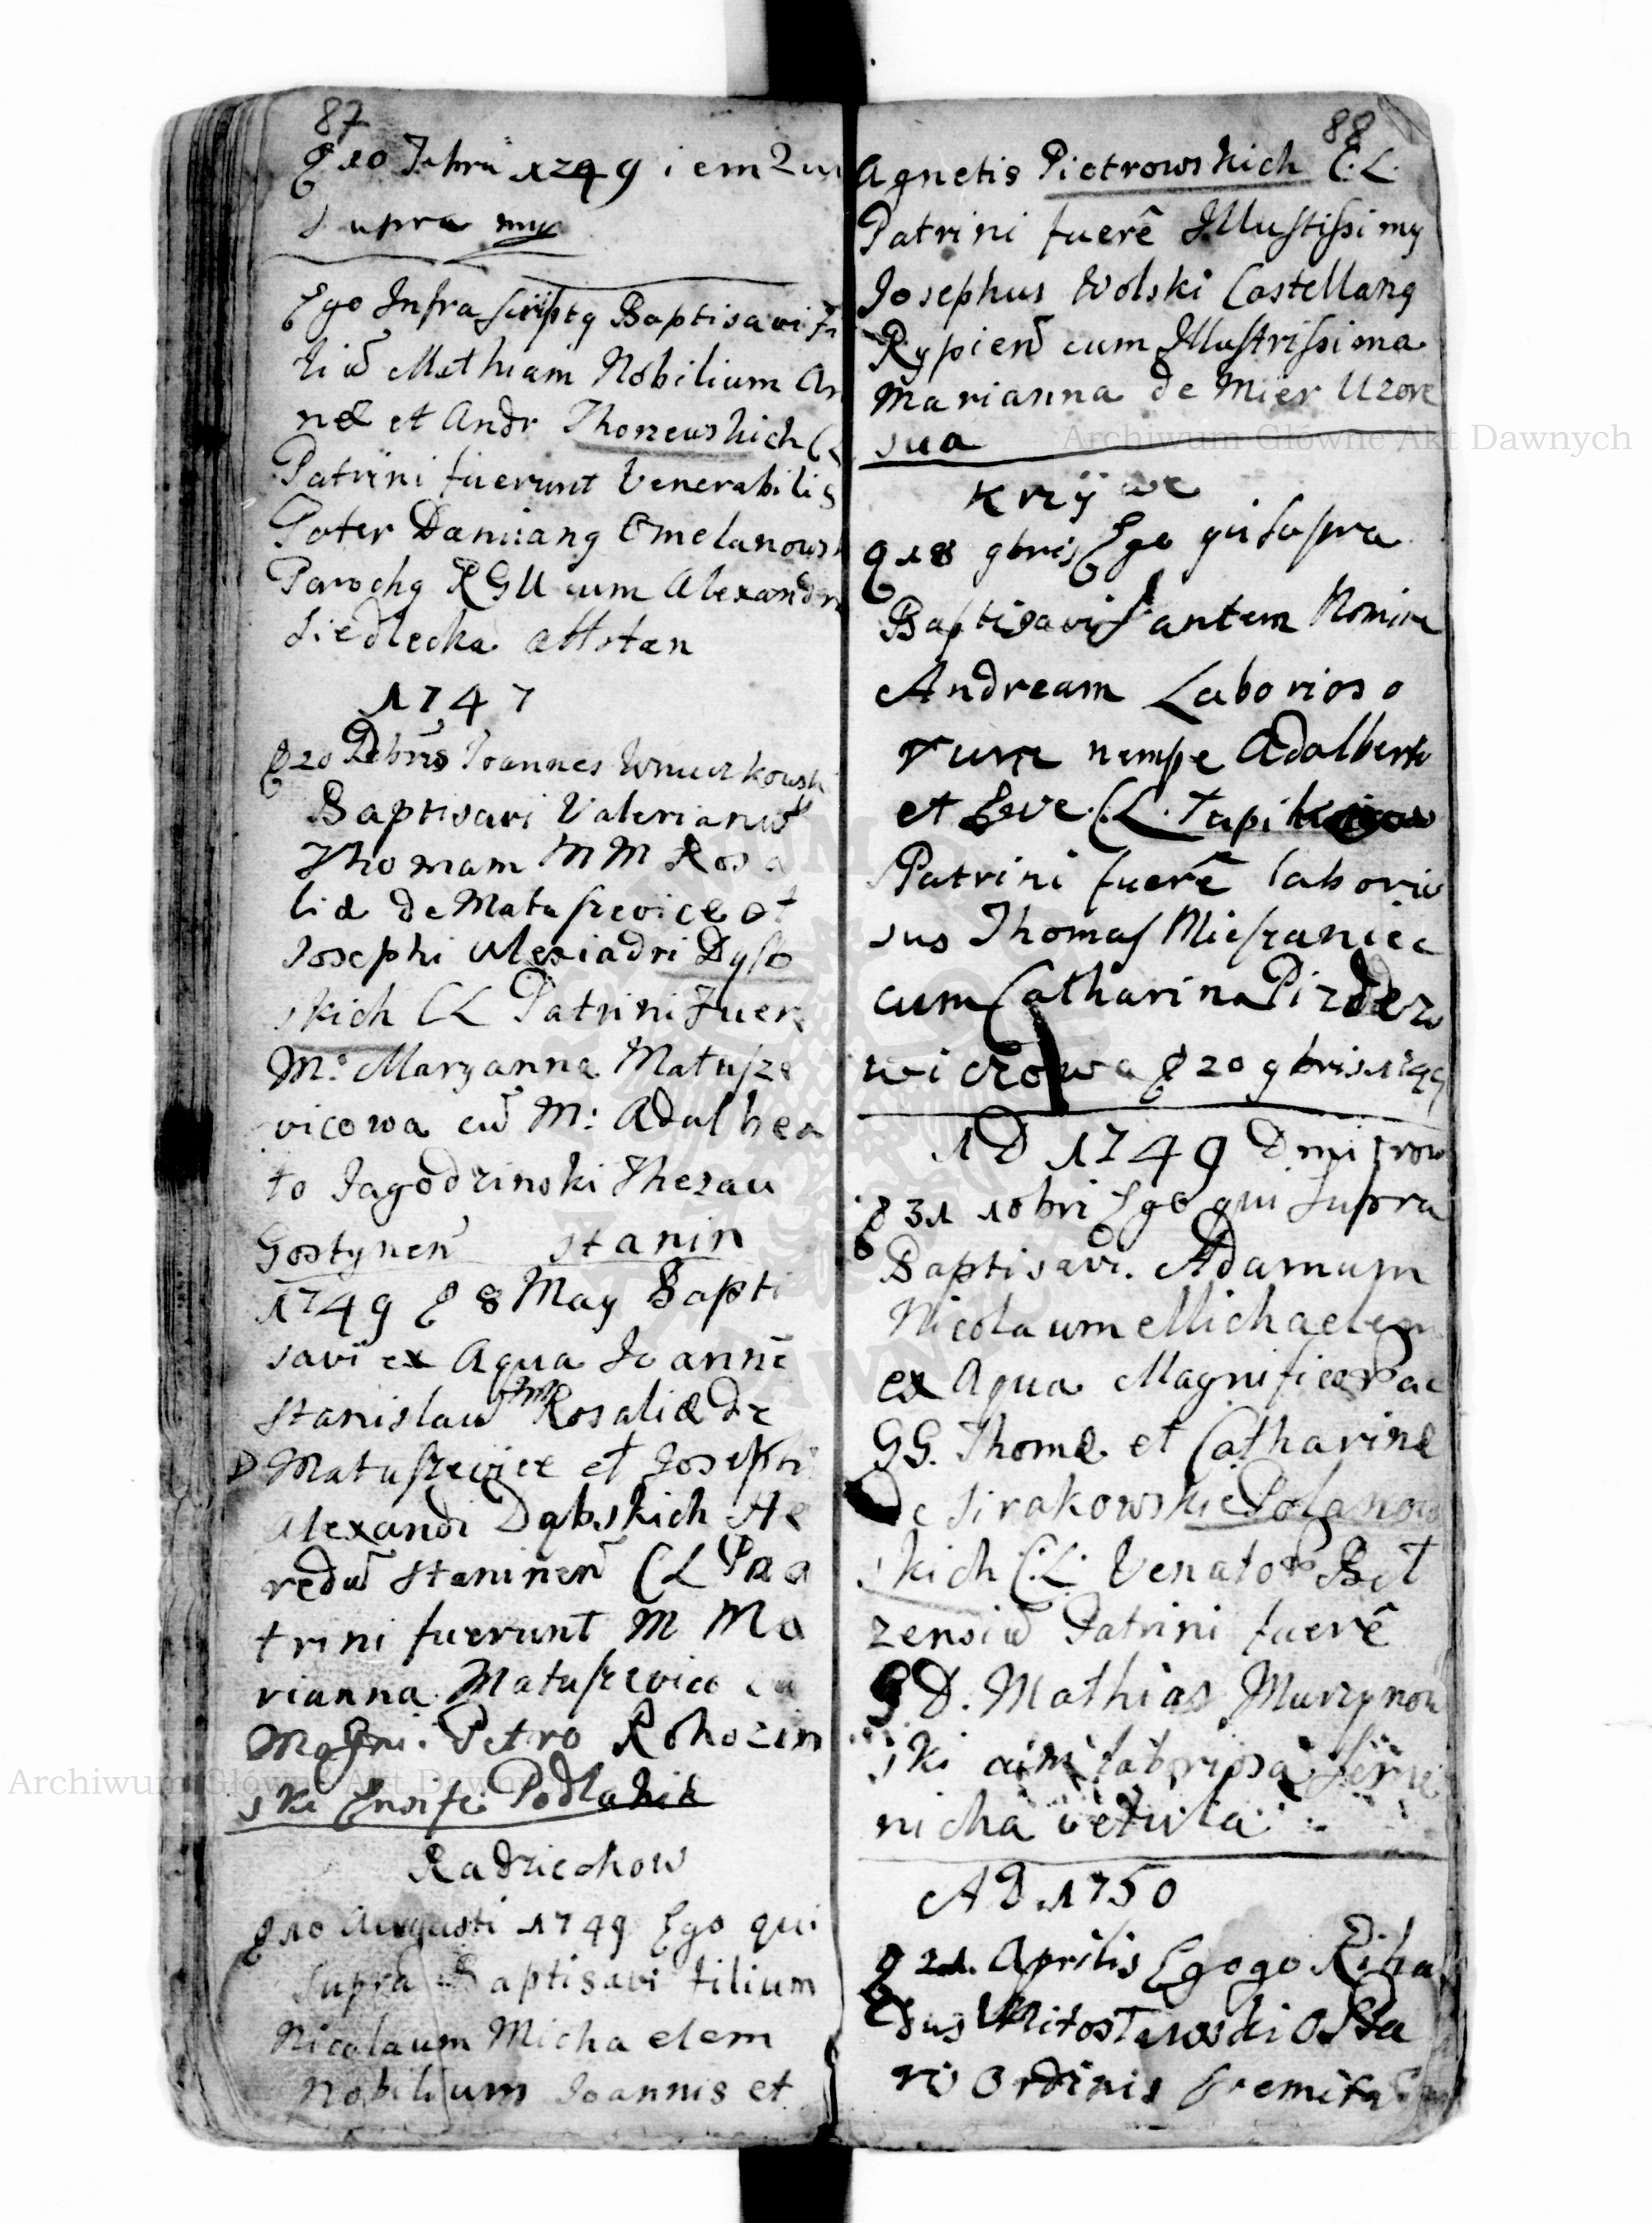 87
10 Febru 1749 i em Qui
Supra mp
Ego Infra scriptq Baptisavi Fi
liu Mathiam Nobilium An
næ et Andr Thorzewskich CL
Patrini fuerunt Venerabilis
Pater Damianq Omelanows
Parochq RGU cum Alexandra
Siedlecka Attstan
1747
20 Joannes
Baptisavi Valerianu
Thomam MM Rosa
liæ de Matuszevice et
Josephi Alexiadri Dąb
skich CL Patrini Fuer
M: Maryanna Matusze
vicowa cu M: Adalber
to Jagodzinski Thezau
Gostynen Stanin
1749 8 May Bapti
savi ex Aqua Joanne
Stanislau MM Rosaliæ De
Matuszevice et Josephi
Alexandi Dąbskich He
redu Staninen CL Pa
trini fuerunt M Ma
rianna Matuszevico cu
Magni: Petro Rohozin
ski Ensife Podlahik
Radziechow
10 Augusti 1749 Ego qui
Supra Baptisavi filium
Nicolaum Michaelem
Nobilium Joannis et
88
Agnetis Pietrowskich C.L.
Patrini fuerê Illustissimy
Josephus Wolski Castellanq
Rypien cum Illustrissima
Marianna de Mier Uxore
sua
Krzywe
18 9bris Ego qui supra
Baptisavi Infantem Nomine
Andream Laborioso
rum nempe Adalberti
et Evæ C.L.
Patrini fuerê laborio
sus Thomas Mieszaniec
cum Catharina
wiczowa 20 9bris 1749
AD 1749
31 10bri Ego qui Supra
Baptisavi. Adamum
Nicolaum Michaelem
ex Aqua Magnificor ac
GG. Thomæ et Catharinæ
De Sirakowskie Polanow
skich C.L. Venator Beł
zensiu Patrini fuerê
GD. Mathias Murzynow
ski cum laboriosa
nicha vetula
AD 1750
21. Aprilis Egogo Riha
dus Mitostawski Osta
ris Ordinis Eremita
Archiwum Główne Akt Dawnych
Archiwum Główne Akt Dawnych